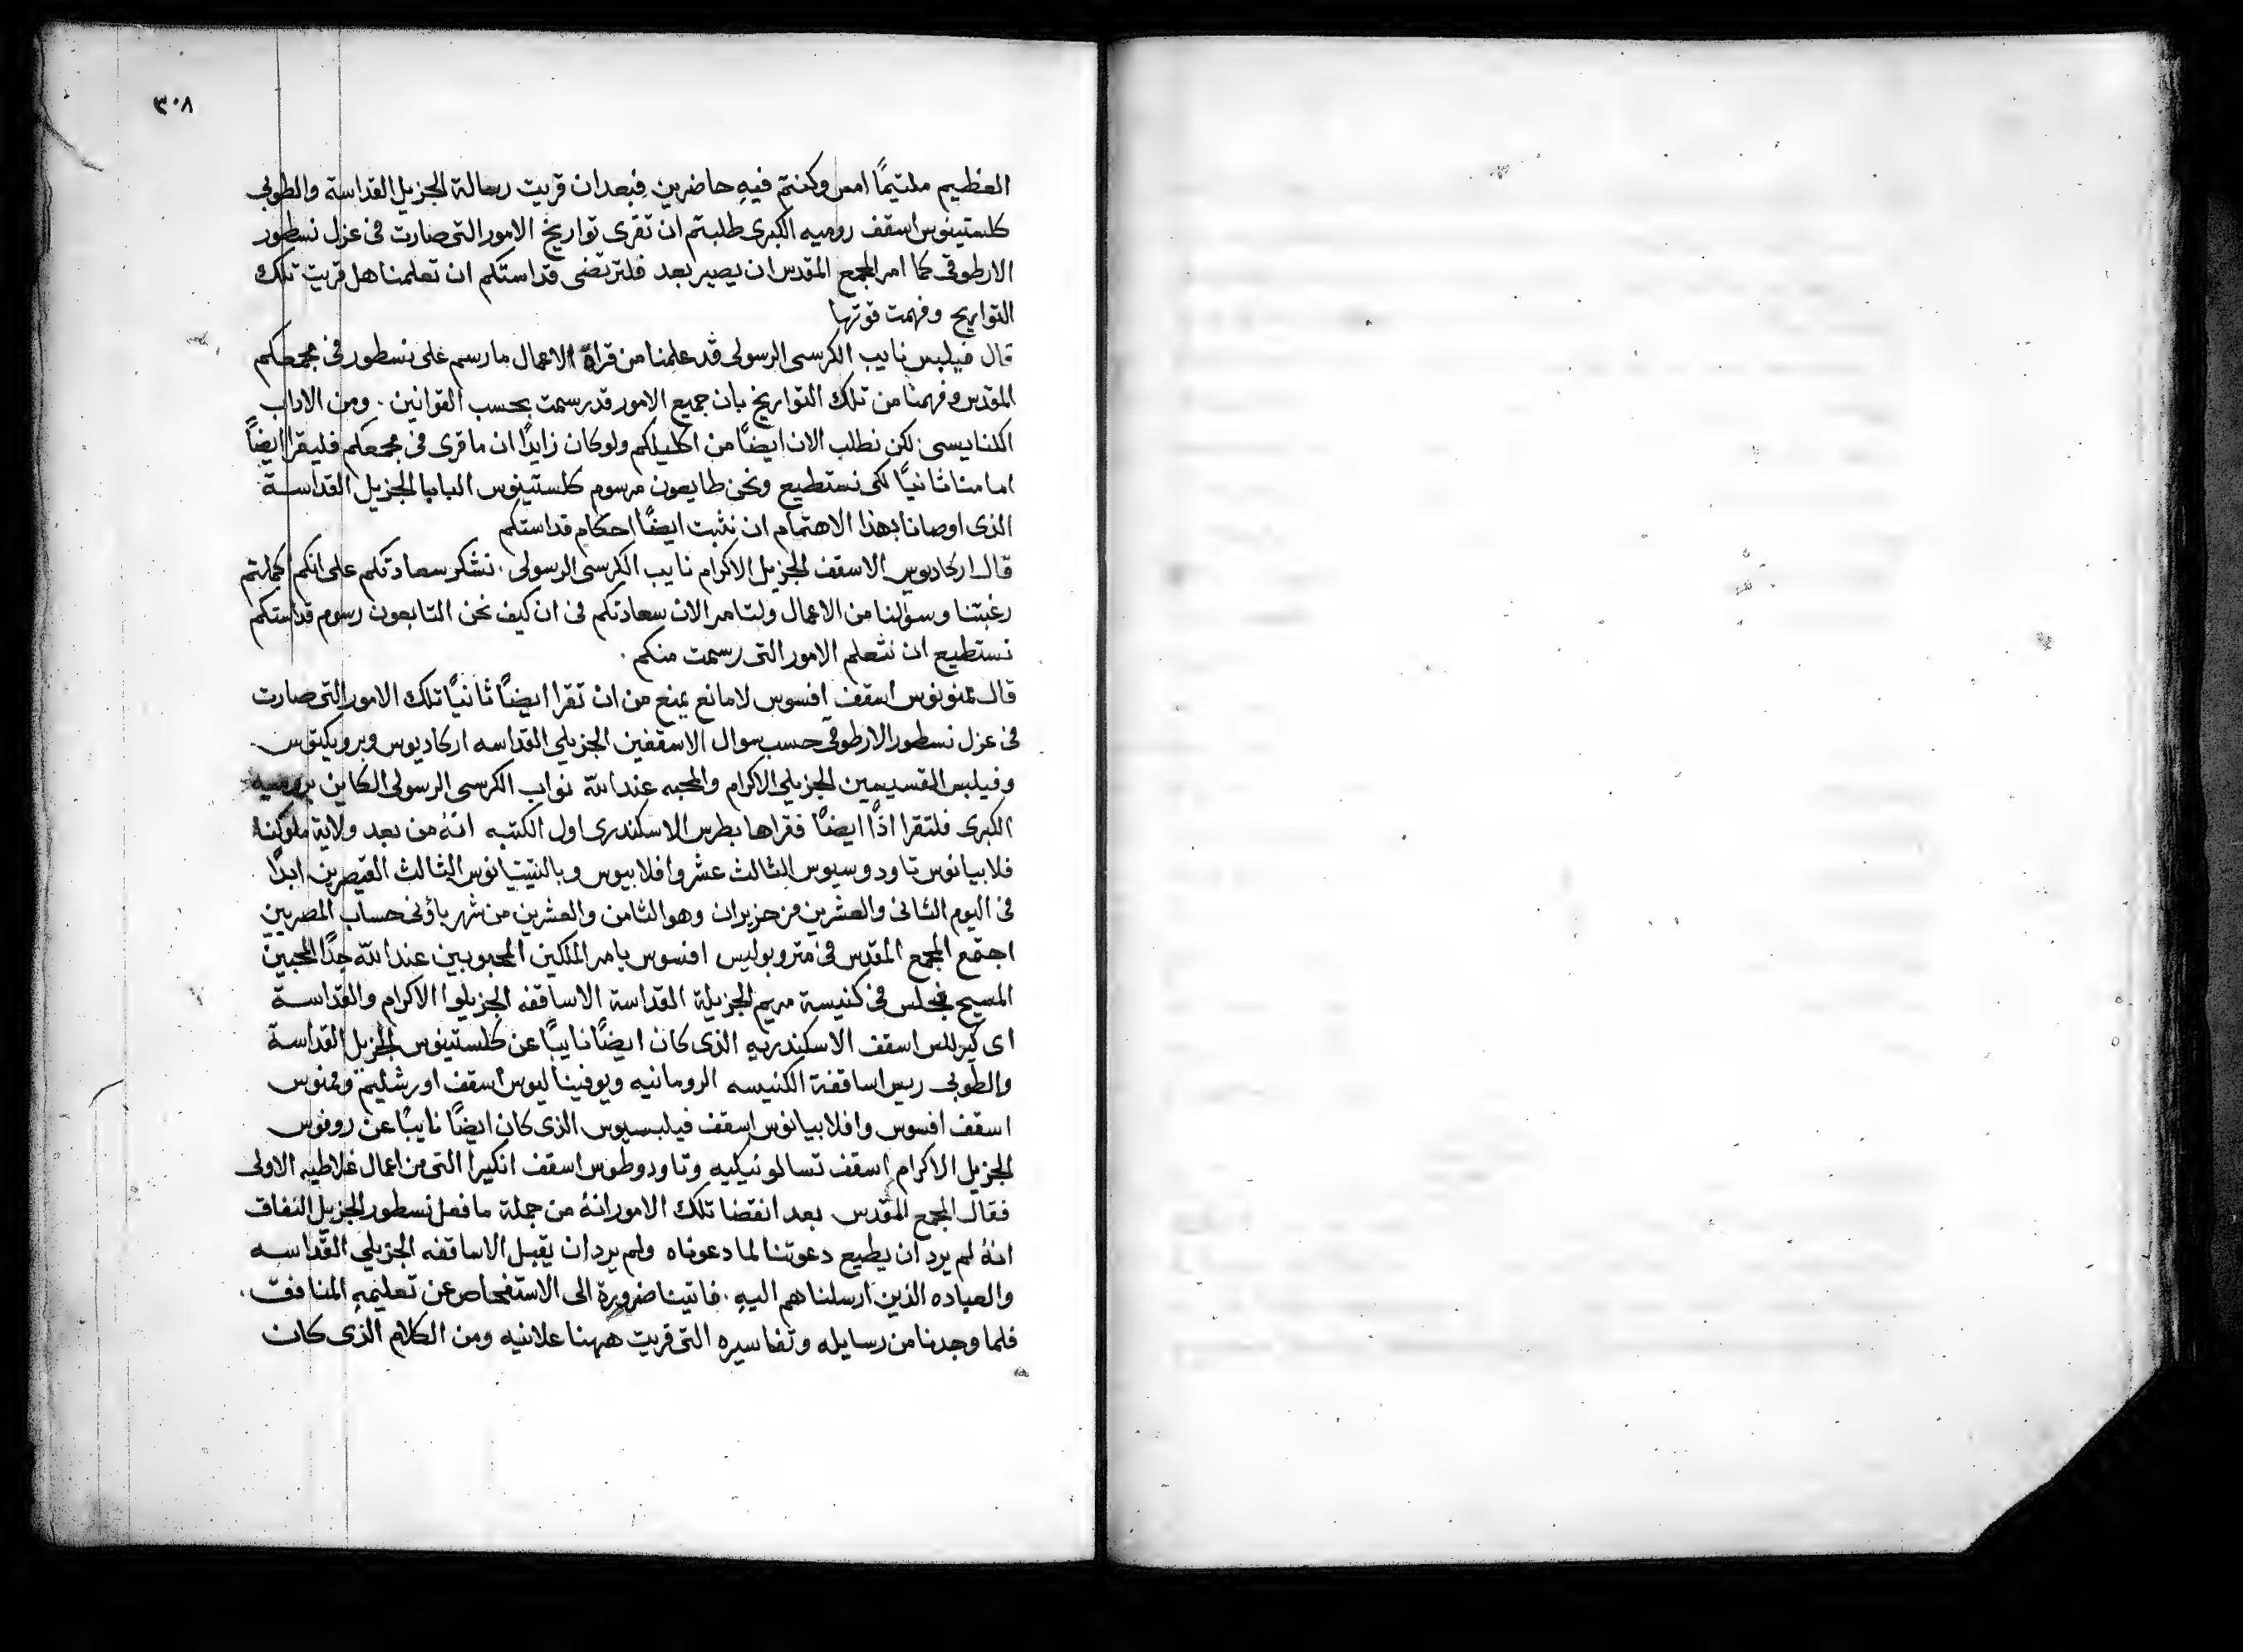 ٣٠٨
العظيم ملتيمًا امس وكنتم فيهِ حاضرين فبعد ان قريت رسالة الجزيل القداسة والطوبى
كلستينوس اسقف روميه الكبرى طلبتم ان تقرى تواريخ الامور التى صارت فى عزل نسطور
الارطوقى كما امر المجمع المقدس ان يصير بعد فلترتضى قداستكم ان تعلمنا هل قريت تلك
التواريخ وفهمت قوتها
قال فيلبس نايب الكرسى الرسولى قد علمنا من قراة الاعمال ما رسم على نسطور فى مجمعكم
المقدس وفهمنا من تلك التواريخ بان جميع الامور قد رسمت بحسب القوانين . ومن الاداب
الكنايسى لكن نطلب الان ايضًا من اكليلكم ولو كان زايدًا ان ما قرى فى مجمعكم فليقرا ايضًا
امامنا ثانيًا لكى نستطيع ونحن طايعون مرسوم كلستينوس البابا الجزيل القداسة
الذى اوصانا بهذا الاهتمام ان نثبت ايضًا احكام قداستكم
قال اركاديوس الاسقف الجزيل الاكرام نايب الكرسى الرسولى . نشكر سعادتكم على انكم كملتم
رغبتنا وسوالنا من الاعمال ولتامر الان سعادتكم فى ان كيف نحن التابعون رسوم قداستكم
نستطيع ان نتعلم الامور التى رسمت منكم .
قال ممنونوس اسقف افسوس لا مانع يمنع من ان تقرا ايضًا ثانيًا تلك الامور التى صارت
فى عزل نسطور الارطوقى حسب سوال الاسقفين الجزيلى القداسه اركاديوس وبرويكتوس
وفيلبس القسيسين الجزيلى الاكرام والمحبه عند الله نواب الكرسى الرسولى الكاين بروميه
الكبرى فلتقرا اذًا ايضًا فقراها بطرس الاسكندرى اول الكتبه انهُ من بعد ولاية ملوكنا
فلابيانوس تاودوسيوس الثالث عشر وافلابيوس وبالنتيتيانوس الثالث القيصرين ابدًا
فى اليوم الثانى والعشرين من حزيران وهو الثامن والعشرين من شهر باؤنى حساب المصريين
اجتمع المجمع المقدس فى متروبوليس افسوس بامر الملكين المحبوبين عند الله جدًا المحبين
المسيح فجلس فى كنيسة مريم الجزيلة القداسة الاساقفه الجزيلوا الاكرام والقداسة
اى كيرللس اسقف الاسكندريه الذى كان ايضًا نايبًا عن كلستينوس الجزيل القداسة
والطوبى ريس اساقفة الكنيسه الرومانيه ويوفيناليوس اسقف اورشليم وممنوس
اسقف افسوس وافلابيانوس اسقف فيلبسيوس الذى كان ايضًا نايبًا عن روفوس
الجزيل الاكرام اسقف تسالونيكيه وتاودوطوس اسقف انكيرا التى من اعمال غلاطيه الاولى
فقال المجمع المقدس بعد انقضا تلك الامور انهُ من جملة ما فعل نسطور الجزيل النفاق
انهُ لم يرد ان يطيع دعوتنا لما دعوناه ولم يرد ان يقبل الاساقفه الجزيلى القداسه
والعباده الذين ارسلناهم اليهِ . فاتينا ضرورة الى الاستفحاص عن تعليمهِ المنافق .
فلما وجدنا من رسايله وتفاسيره التى قريت ههنا علانيه ومن الكلام الذى كان